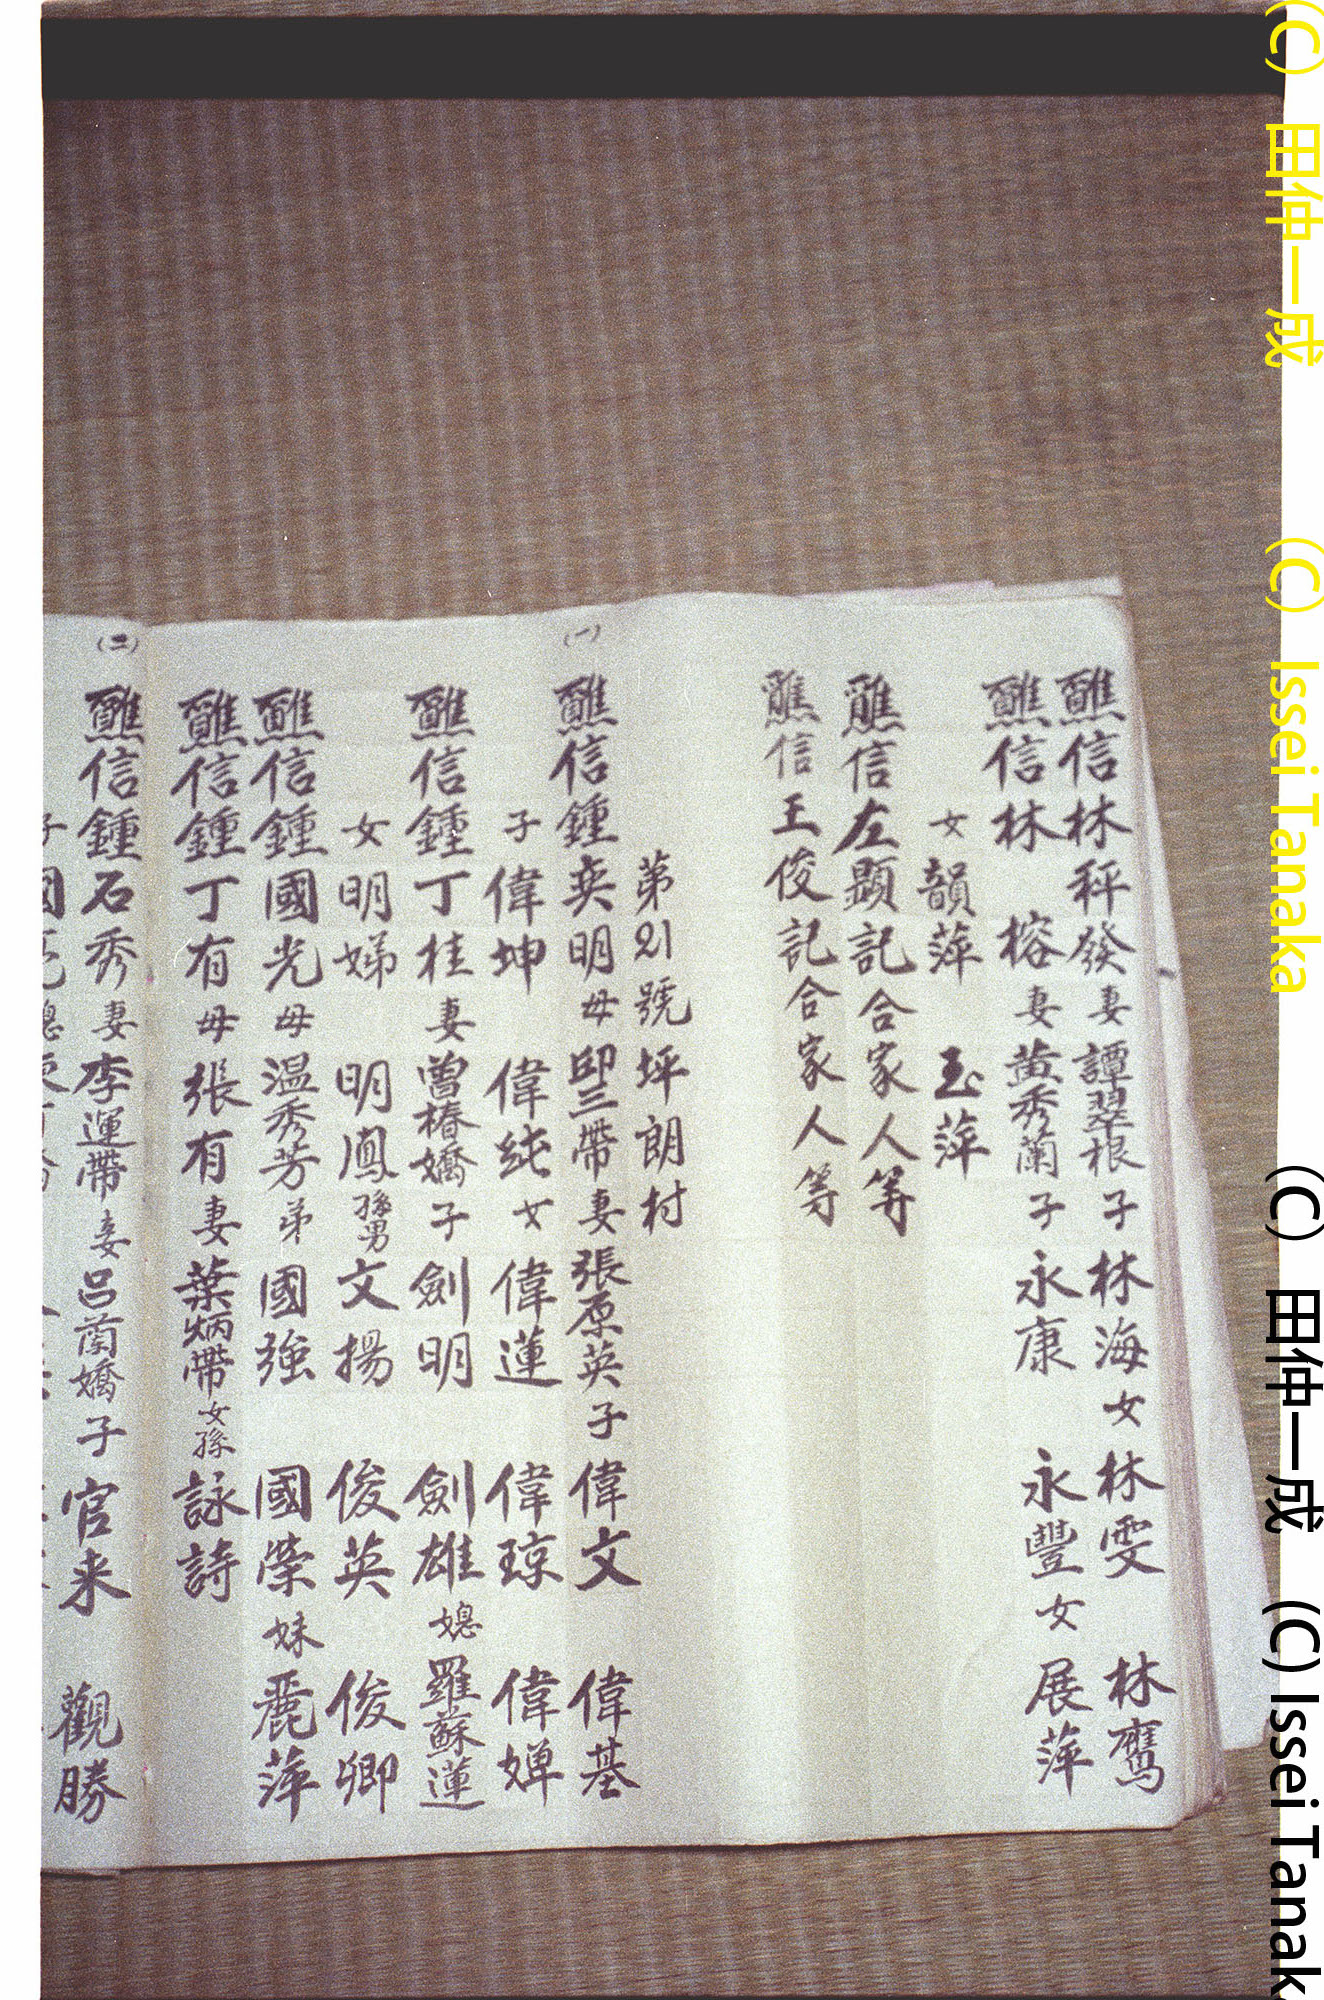 醮信林秤發妻譚翠根子林海女林雯 林鷹
醮信林 榕妻黄秀蘭子永康 永豐女展萍
女韻萍 玉萍
醮信左顯記合家人等
醮信王俊記合家人等
第21號坪朗村
(一)
醮信鍾奕明母邱三帶妻張原英子偉文 偉基
子偉坤 偉純女偉蓮 偉琼 偉婵
醮信鍾丁桂妻曾椿嬌子劍明 劍雄媳羅蘇蓮
女明娣 明鳳孫男文揚 俊英 俊卿
醮信鍾國光母温秀芳弟國強 國榮妹麗萍
醮信鍾丁有母張有妻葉炳帶女孫詠詩
(二)
醮信鍾石秀妻李運帶妾呂蘭嬌子官来 觀勝
(C) 田仲一成 (C) Issei Tanaka
(C) 田仲一成 (C) Issei Tanak